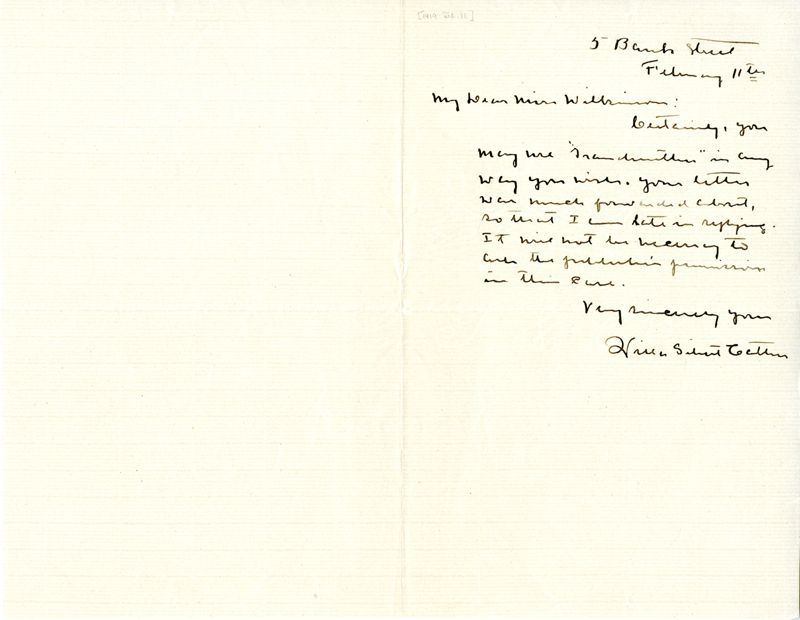 [1919 FEB. 11]
5 Bank Street
February 11th
My Dear Miss Wilkinson:
Certainly, you
may use "Grandmither" in any
way you wish. Your letter
was much forwarded about,
so that I am late in replying.
It will not be necessary to
ask the publisher's permission
in this case.
Very sincerely yours
Willa Sibert Cather